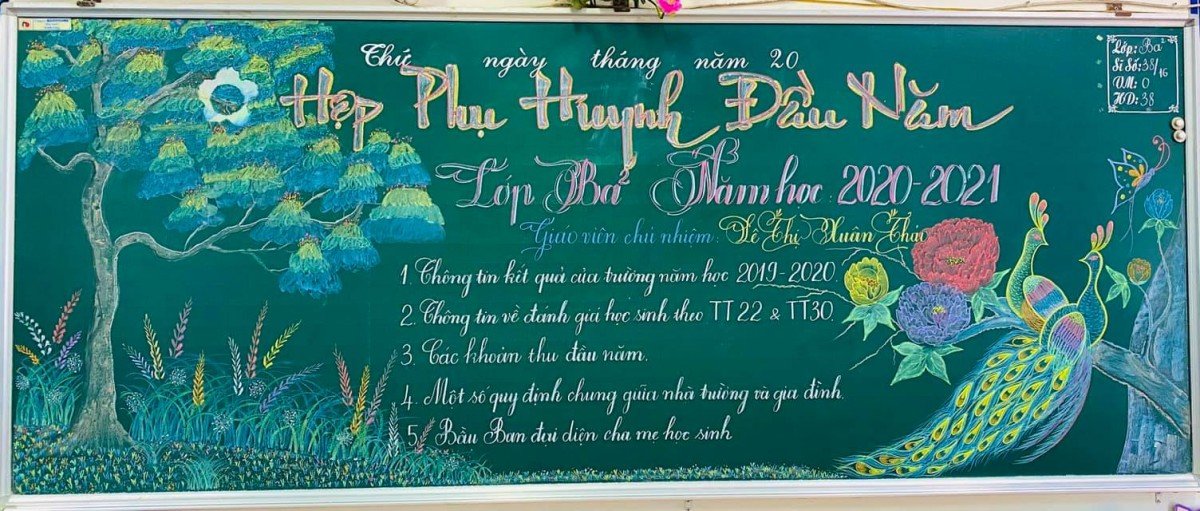 Thứ ngày tháng năm 20
Họp Phụ Huynh Đầu Năm
Lớp Ba² Năm học 2020-2021
Giáo viên chủ nhiệm: Lê Thị Xuân Thảo
1. Thông tin kết quả của trường năm học 2019-2020.
2. Thông tin về đánh giá học sinh theo TT22 & TT30.
3. Các khoản thu đầu năm.
4. Một số quy định chung giữa nhà trường và gia đình.
5. Bầu Ban đại diện cha mẹ học sinh
Lớp: Ba²
Sĩ Số: 38/16
VM: 0
HD: 38